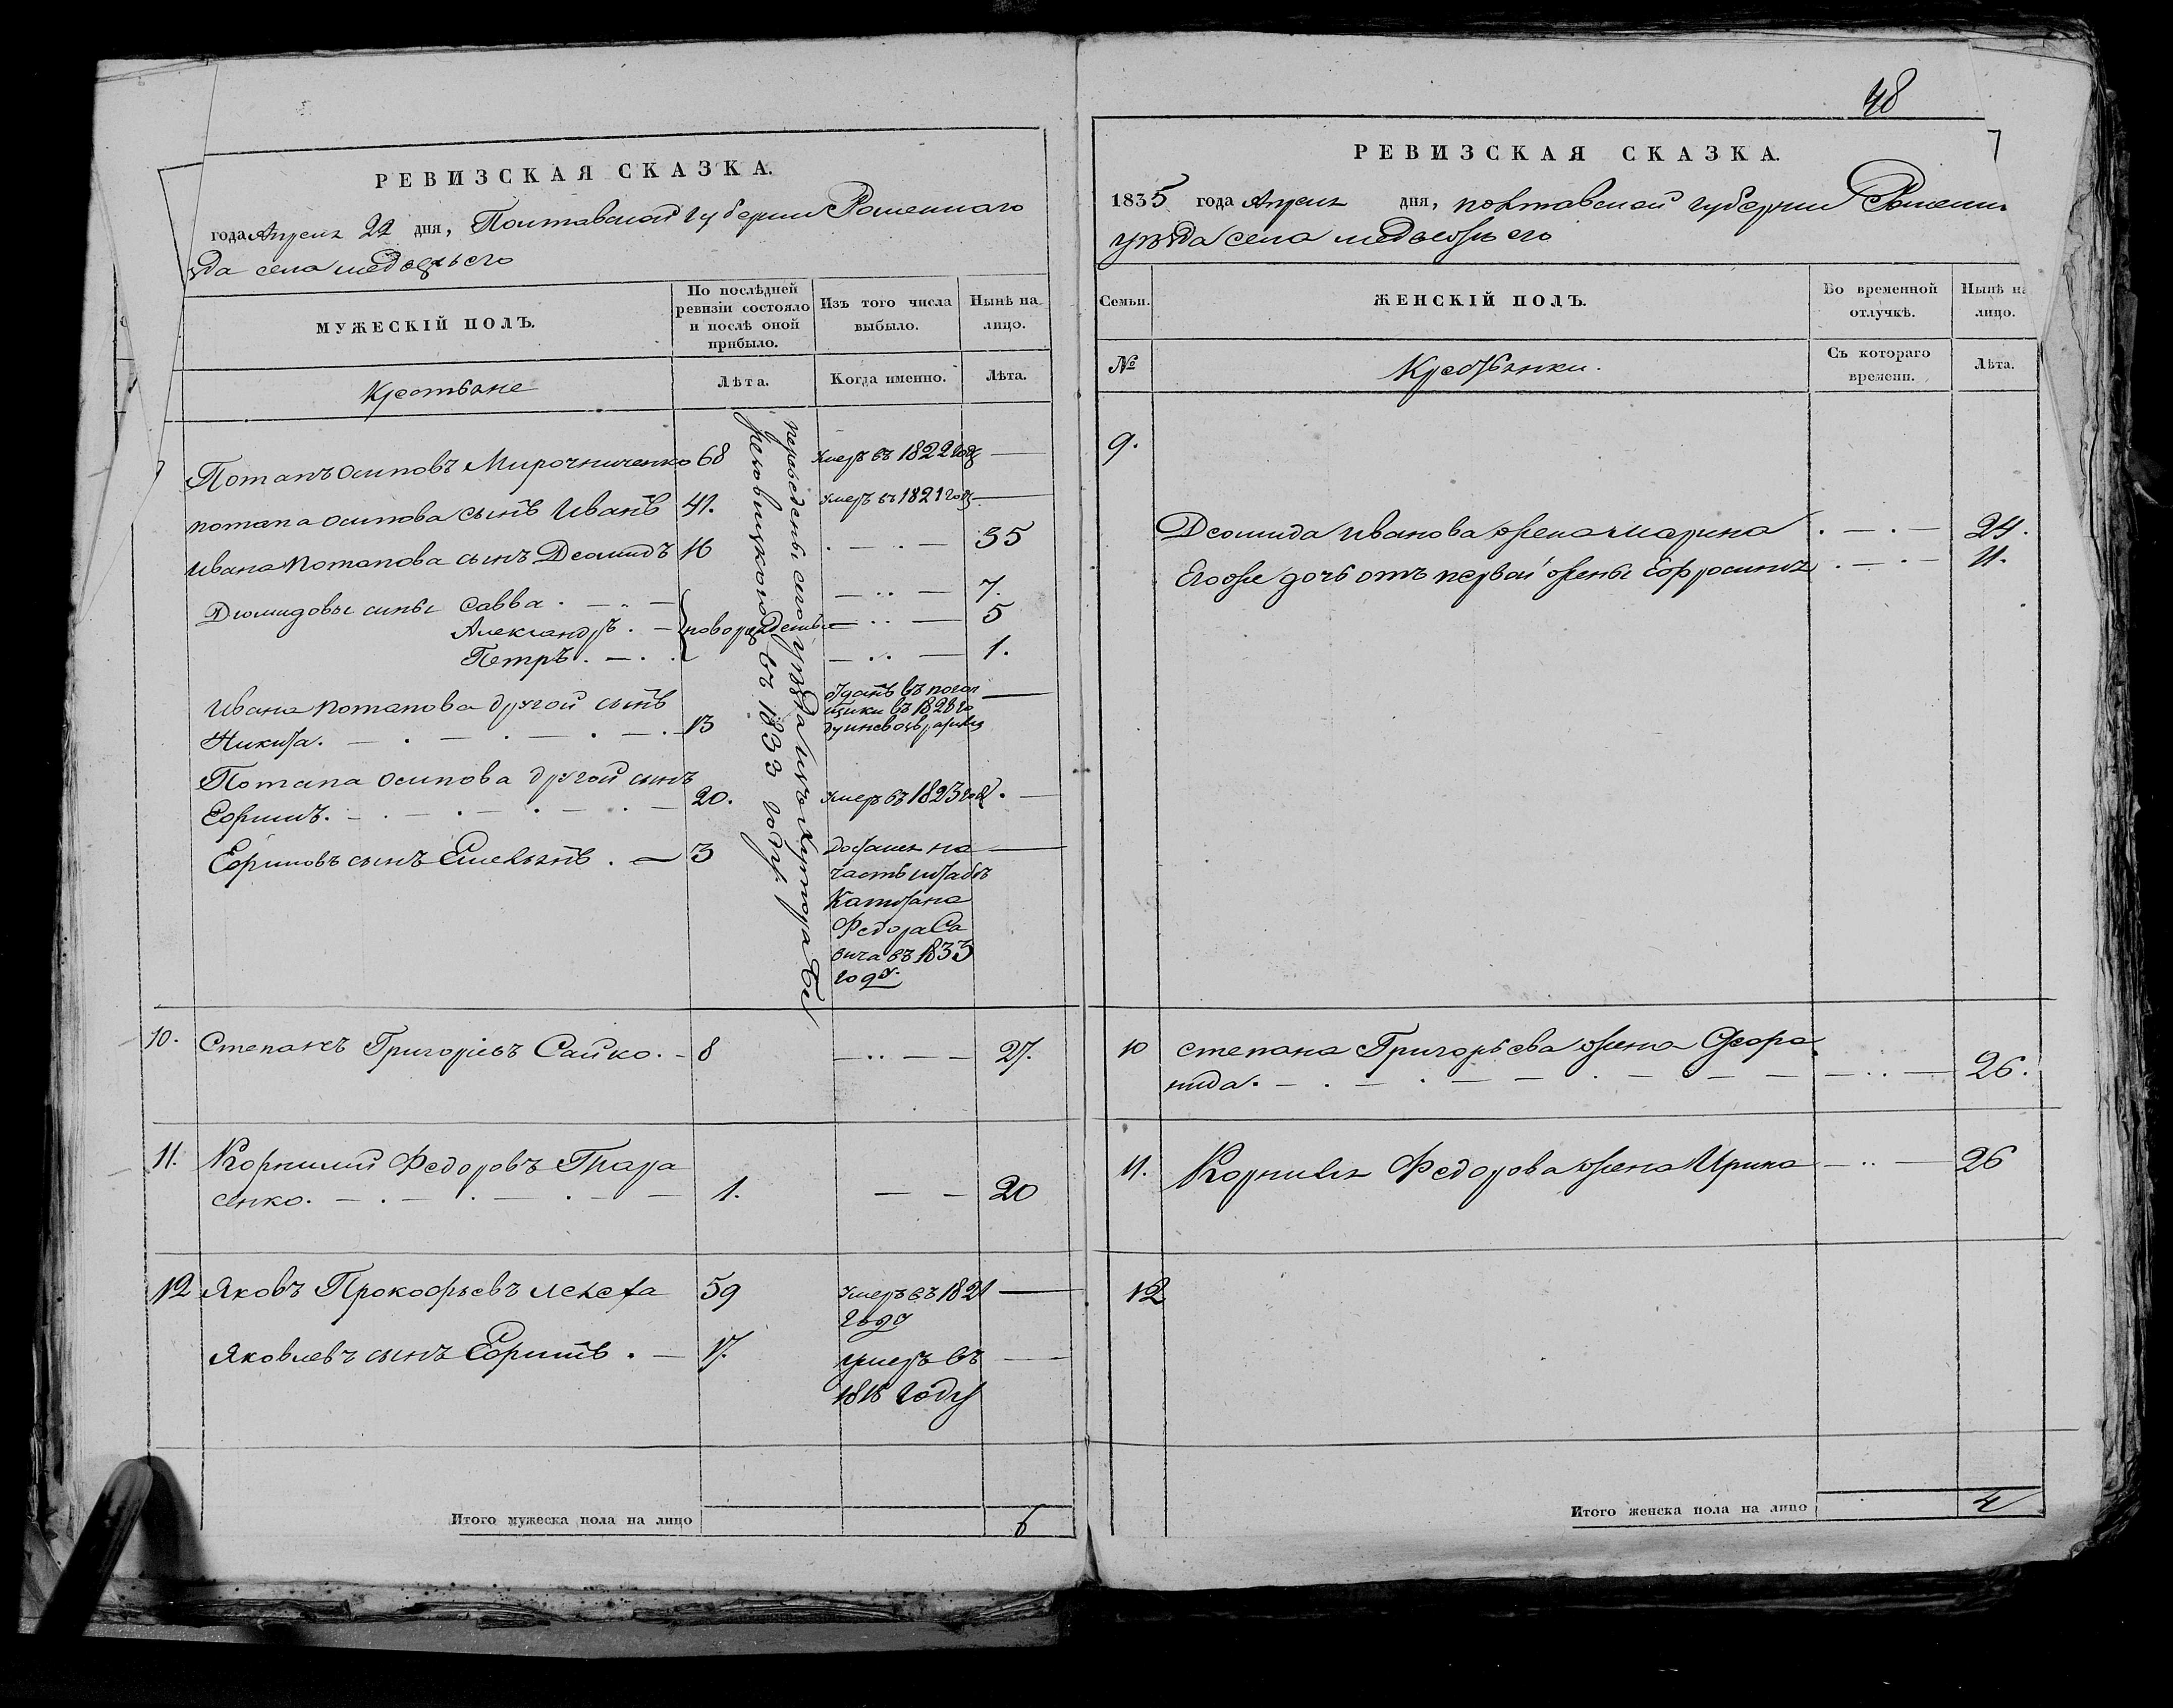 РЕВИЗСКАЯ СКАЗКА.
года Апреля 22 дня, Полтавской губернии Роменнаго
да села медвежьего
МУЖЕСКІЙ ПОЛЪ.
По послѣдней
ревизіи состояло
и послѣ оной
прибыло.
Изъ того числа
выбыло.
Нынѣ на
лицо.
Крестьяне
Лѣта.
Когда именно.
Лѣта.
Потапъ Осиповъ Мирочниченко 68 умеръ въ 1822 году —
потапа осипова сынъ Иванъ 41. умеръ въ 1821 году —
Ивана потапова сынъ Деомидъ 16 35
Диомидовы сины Савва 7.
Александръ новорожденные 5
Петръ 1.
Ивана потапова другой сынъ
Никита. 13
отданъ въ погон
щики въ 1828 го
ду
Потапа осипова другой сынъ
Ефимъ. 20. умеръ въ 1823 году —
Ефимовъ сынъ Емельянъ 3
достался на
часть штабъ
Капитана
Федора Са
вича въ 1833
году.
переведены сего уезда изъ хутора Бе
реловицкого въ 1833 году
10. Степанъ Григорьевъ Сайко. 8 27.
11. Корнилий Федоровъ Тара
сенко. 1. 20
12 Яковъ Прокофьевъ 59 умеръ въ 1821 —
году
Яковлевъ сынъ Ефимъ 17. умеръ въ —
1818 году
Итого мужеска пола на лицо 6
48
РЕВИЗСКАЯ СКАЗКА.
1835 года Апреля дня, полтавской губернии Роменн
уезда села медвежьего
Семьи.
ЖЕНСКІЙ ПОЛЪ.
Во временной
отлучкѣ.
Нынѣ на
лицо.
№
Крестьянки.
Съ котораго
времени.
Лѣта.
9.
Деомида Иванова жена марина 24.
Егоже дочь отъ первой жены Ефросинья 11.
10 степана Григорьева жена Феофа
нида. 26.
11. Корнилия Федорова жена Ирина 26
12
Итого женска пола на лицо 4